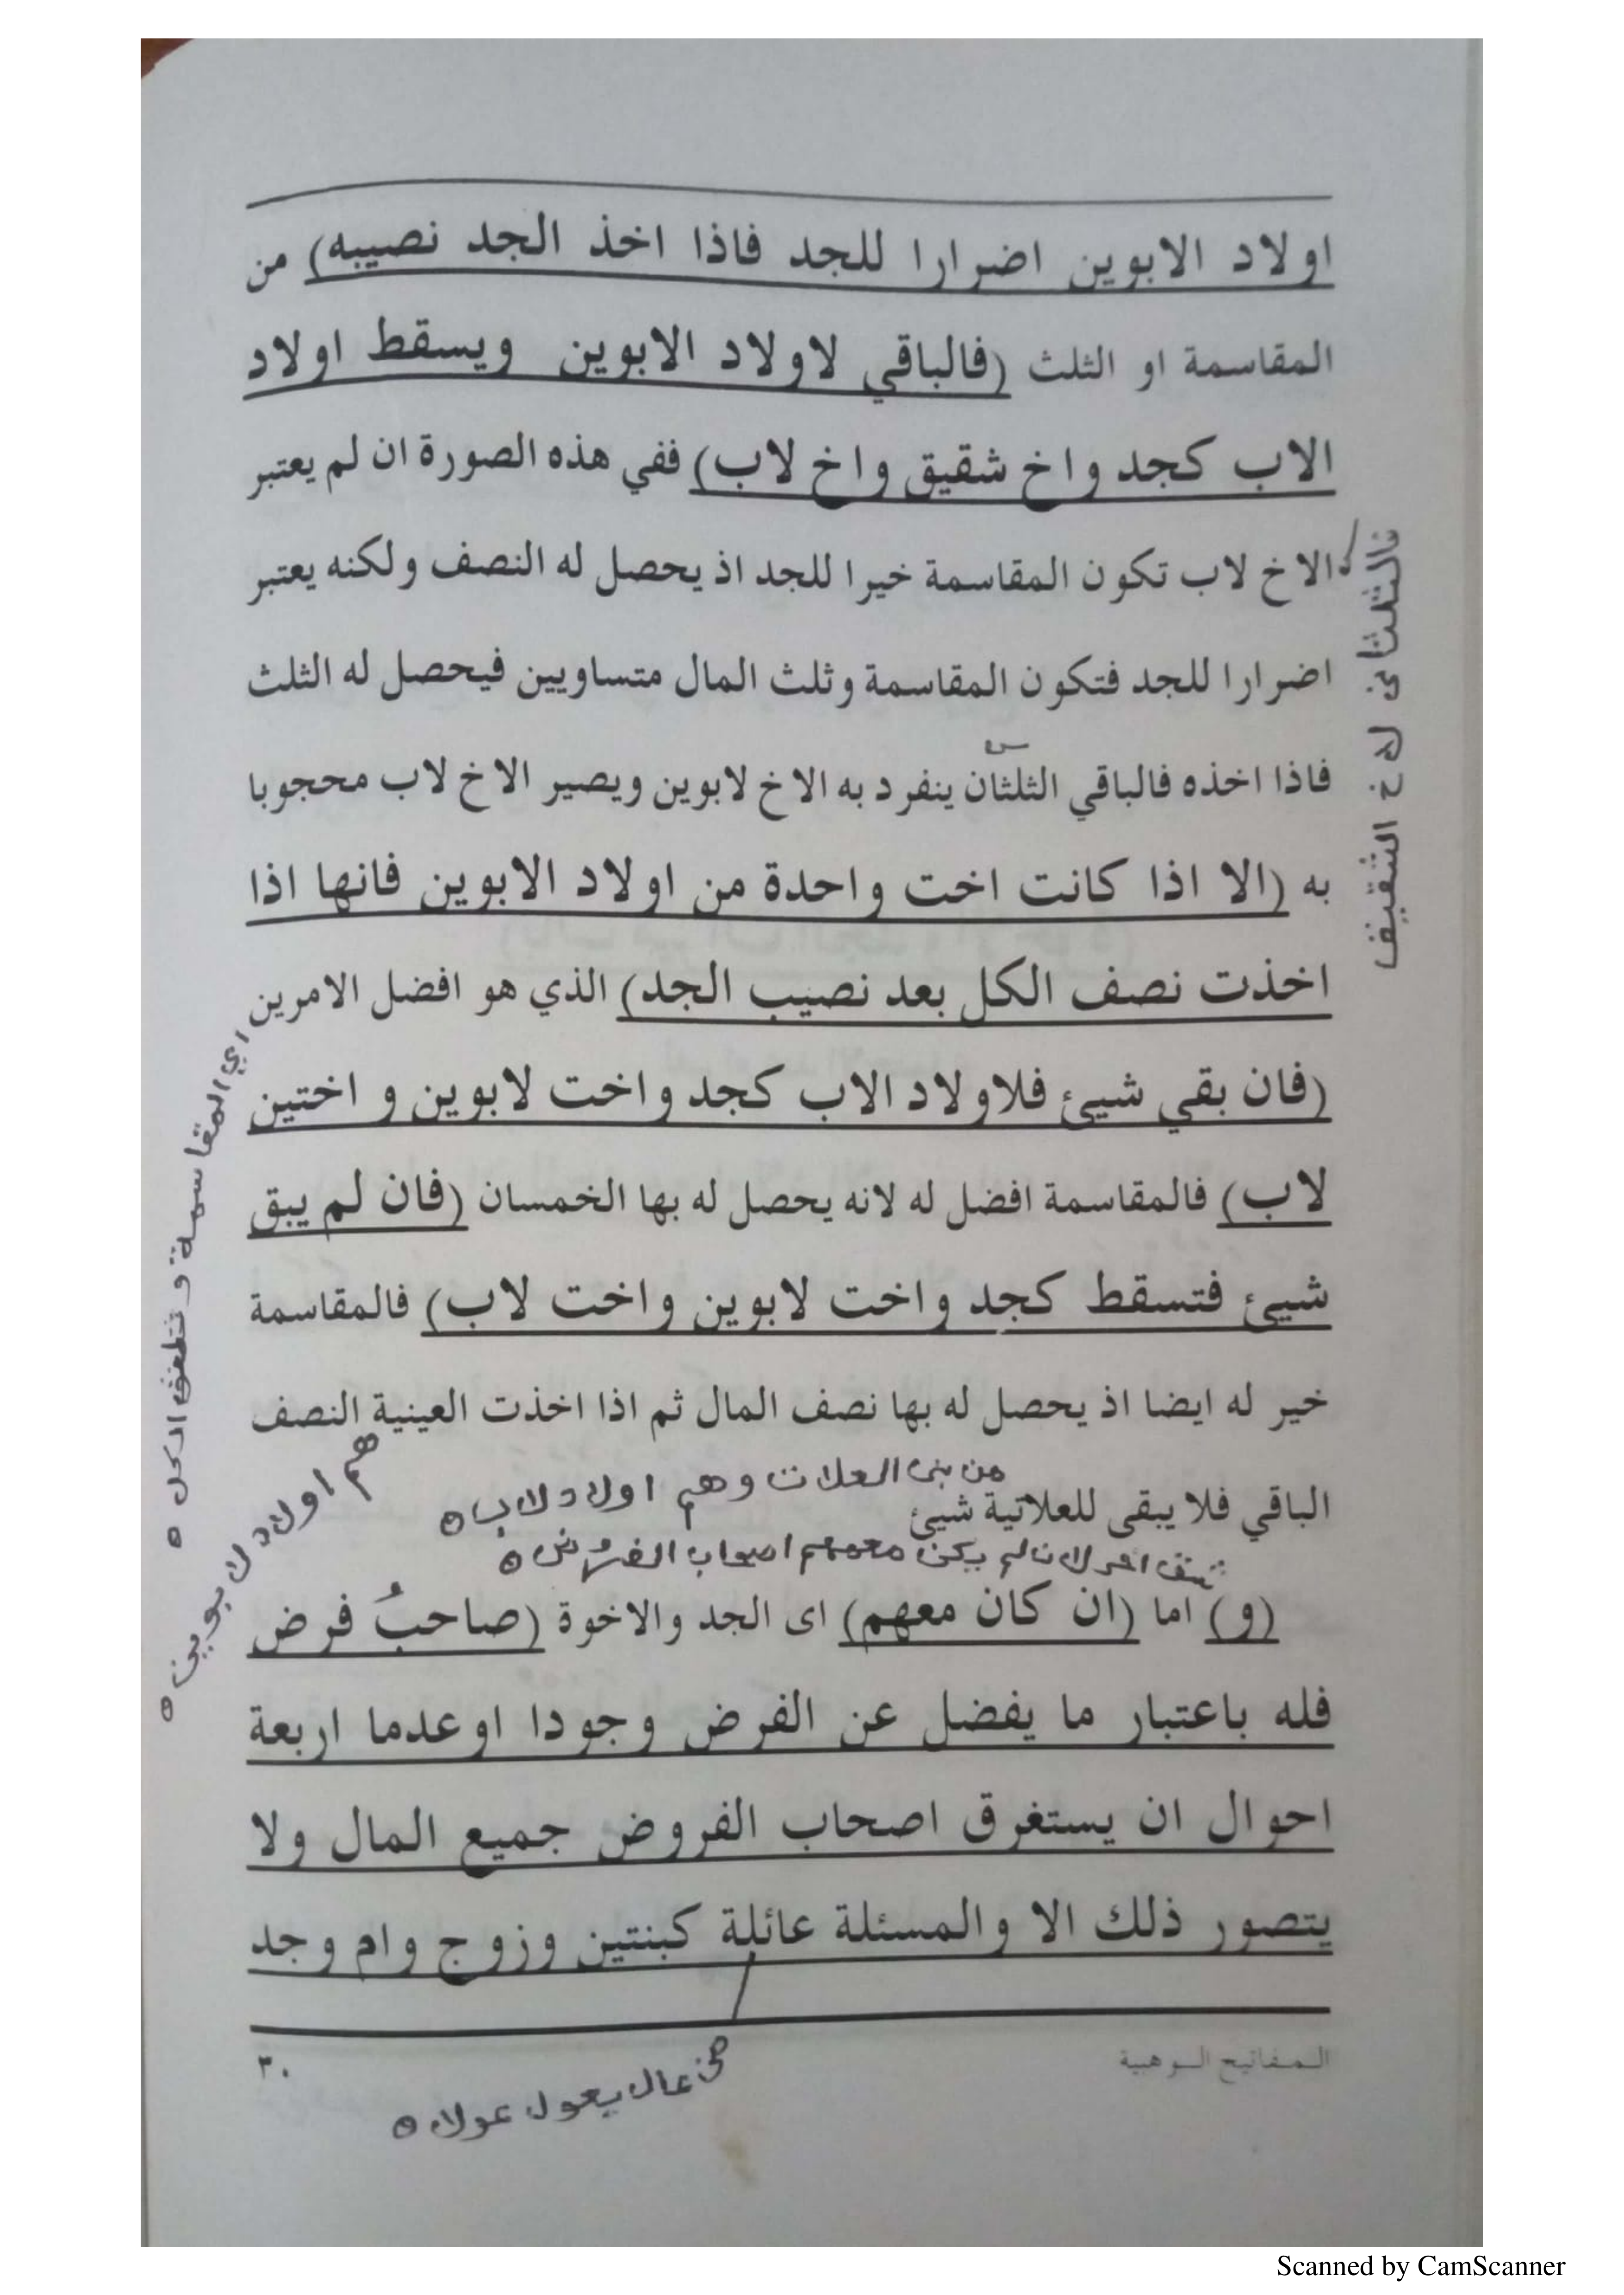 اولاد الابوين اضرارا للجد فاذا اخذ الجد نصيبه) من
المقاسمة او الثلث (فالباقي لاولاد الابوين ويسقط اولاد
الاب كجد واخ شقيق واخ لاب) ففي هذه الصورة ان لم يعتبر
الاخ لاب تكون المقاسمة خيرا للجد اذ يحصل له النصف ولكنه يعتبر
اضرارا للجد فتكون المقاسمة وثلث المال متساويين فيحصل له الثلث
فاذا اخذه فالباقي الثلثان ينفرد به الاخ لابوين ويصير الاخ لاب محجوبا
به (الا اذا كانت اخت واحدة من اولاد الابوين فانها اذا
اخذت نصف الكل بعد نصيب الجد) الذي هو افضل الامرين
(فان بقي شيئ فلاولاد الاب كجد واخت لابوين و اختين
لاب) فالمقاسمة افضل له لانه يحصل له بها الخمسان (فان لم يبق
شيئ فتسقط كجد واخت لابوين واخت لاب) فالمقاسمة
خير له ايضا اذ يحصل له بها نصف المال ثم اذا اخذت العينية النصف
من بنى العلات وهم اولاد لاب
الباقي فلا يبقى للعلاتية شيئ
ان لم يكن معهم اصحاب الفروض
(و) اما (ان كان معهم) اى الجد والاخوة (صاحبُ فرض
فله باعتبار ما يفضل عن الفرض وجودا او عدما اربعة
احوال ان يستغرق اصحاب الفروض جميع المال ولا
يتصور ذلك الا والمسئلة عائلة كبنتين وزوج وام وجد
المفاتيح الوهبية
٣٠
من عال يعول عولا
فالثلثان للاخ الشقيق
اي المقاسمة وثلث الكل
هم اولاد لابوين
Scanned by CamScanner